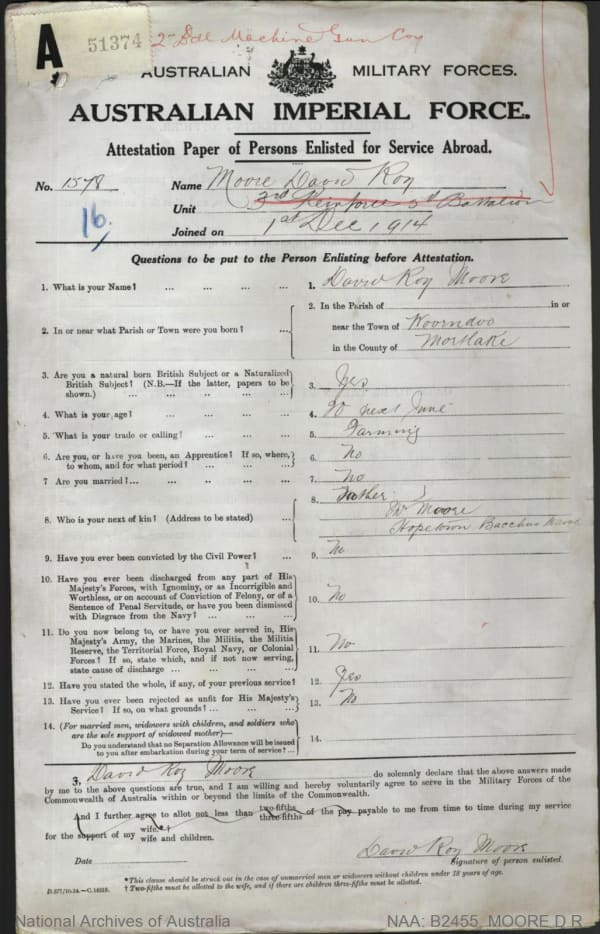 A 51374 2nd Div Machine Gun Coy
AUSTRALIAN MILITARY FORCES.
AUSTRALIAN IMPERIAL FORCE.
Attestation Paper of Persons Enlisted for Service Abroad.
No. 1578 Name Moore David Roy
16. Unit 3rd Reinforce 5th Battalion
Joined on 1st Dec 1914
Questions to be put to the Person Enlisting before Attestation.
1. What is your Name? ... ... ... ... 1. David Roy Moore
2. In or near what Parish or Town were you born? ... 2. In the Parish of in or
near the Town of Woorndoo
in the County of Mortlake
3. Are you a natural born British Subject or a Naturalized
British Subject? (N.B.—If the latter, papers to be
shown.) ... ... ... ... ... 3. Yes
4. What is your age? ... ... ... ... 4. 20 next June
5. What is your trade or calling? ... ... ... 5. Farming
6. Are you, or have you been, an Apprentice? If so, where,
to whom, and for what period? ... ... ... 6. No
7 Are you married?... ... ... ... ... 7. No
8. Who is your next of kin? (Address to be stated) ... 8. Father
Moore
Hopetown Bacchus Marsh
9. Have you ever been convicted by the Civil Power? ... 9. No
10. Have you ever been discharged from any part of His
Majesty's Forces, with Ignominy, or as Incorrigible and
Worthless, or on account of Conviction of Felony, or of a
Sentence of Penal Servitude, or have you been dismissed
with Disgrace from the Navy? ... ... ... 10. No
11. Do you now belong to, or have you ever served in, His
Majesty's Army, the Marines, the Militia, the Militia
Reserve, the Territorial Force, Royal Navy, or Colonial
Forces? If so, state which, and if not now serving,
state cause of discharge ... ... ... ... 11. No
12. Have you stated the whole, if any, of your previous service? 12. Yes
13. Have you ever been rejected as unfit for His Majesty's
Service? If so, on what grounds? ... ... ... 13. No
14. (For married men, widowers with children, and soldiers who
are the sole support of widowed mother)—
Do you understand that no Separation Allowance will be issued
to you after embarkation during your term of service? ... 14.
I, David Roy Moore do solemnly declare that the above answers made
by me to the above questions are true, and I am willing and hereby voluntarily agree to serve in the Military Forces of the
Commonwealth of Australia within or beyond the limits of the Commonwealth.
*And I further agree to allot not less than two-fifths three-fifths of the pay payable to me from time to time during my service
for the support of my wife.† wife and children.
Date David Roy Moore
Signature of person enlisted.
*This clause should be struck out in the case of unmarried men or widowers without children under 18 years of age.
† Two-fifths must be allotted to the wife, and if there are children three-fifths must be allotted.
National Archives of Australia NAA: B2455, MOORE D R